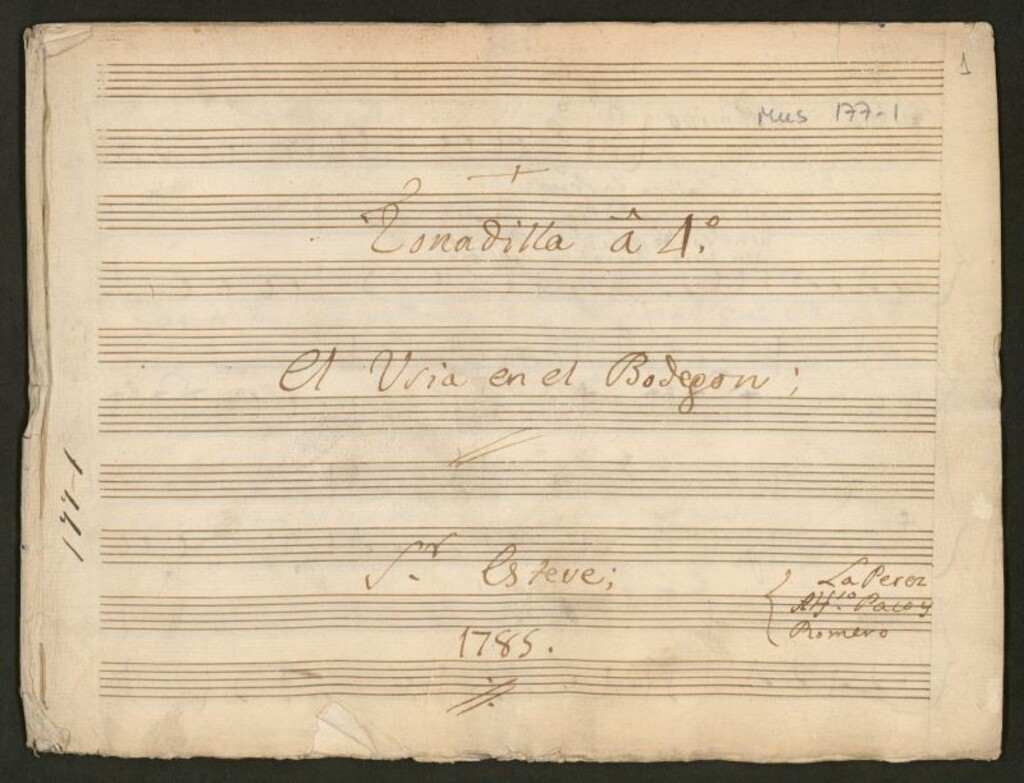 1
Mus 177-1
+
Tonadilla â 4.º
El Usia en el Bodegon;
177-1
S.r Esteve;
La Perez
Alf.so Paco y
Romero
1785.